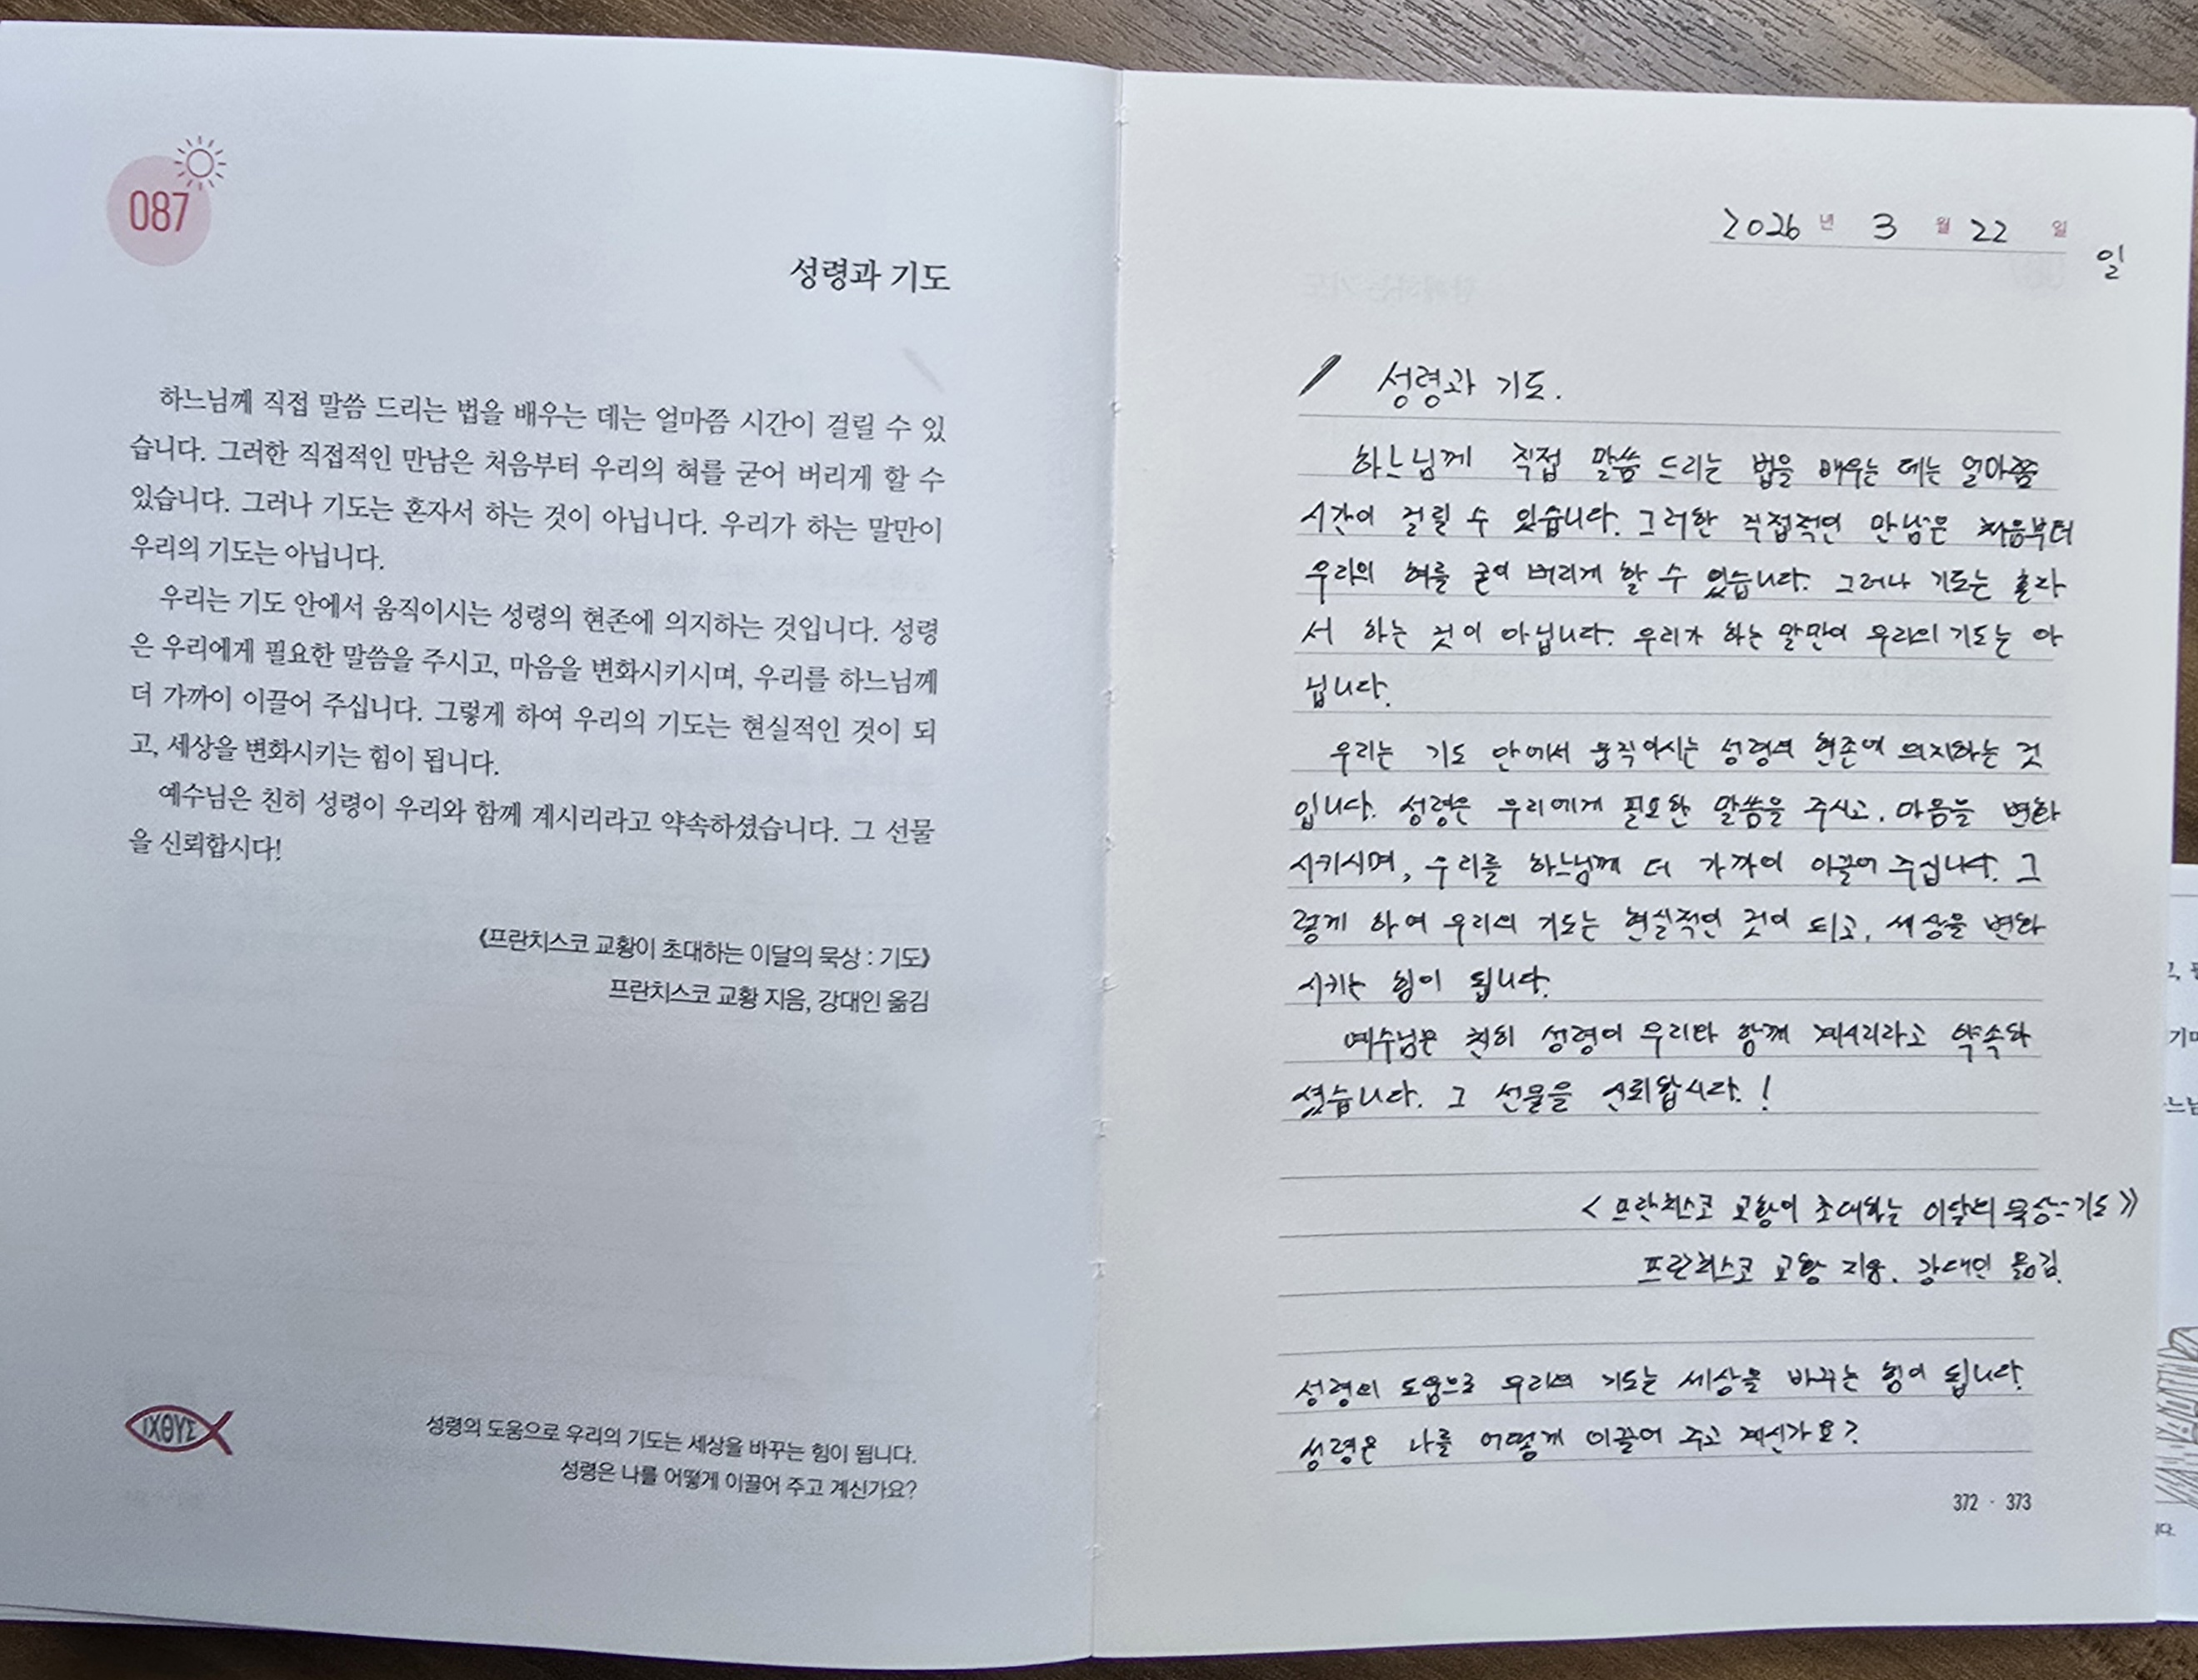 087
성령과 기도
하느님께 직접 말씀 드리는 법을 배우는 데는 얼마쯤 시간이 걸릴 수 있
습니다. 그러한 직접적인 만남은 처음부터 우리의 혀를 굳어 버리게 할 수
있습니다. 그러나 기도는 혼자서 하는 것이 아닙니다. 우리가 하는 말만이
우리의 기도는 아닙니다.
우리는 기도 안에서 움직이시는 성령의 현존에 의지하는 것입니다. 성령
은 우리에게 필요한 말씀을 주시고, 마음을 변화시키시며, 우리를 하느님께
더 가까이 이끌어 주십니다. 그렇게 하여 우리의 기도는 현실적인 것이 되
고, 세상을 변화시키는 힘이 됩니다.
예수님은 친히 성령이 우리와 함께 계시리라고 약속하셨습니다. 그 선물
을 신뢰합시다!
《프란치스코 교황이 초대하는 이달의 묵상 : 기도》
프란치스코 교황 지음, 강대인 옮김
ΙΧΘΥΣ
성령의 도움으로 우리의 기도는 세상을 바꾸는 힘이 됩니다.
성령은 나를 어떻게 이끌어 주고 계신가요?
2026 년 3 월 22 일
일
성령과 기도.
하느님께 직접 말씀 드리는 법을 배우는 데는 얼마쯤
시간이 걸릴 수 있습니다. 그러한 직접적인 만남은 처음부터
우리의 혀를 굳어 버리게 할 수 있습니다. 그러나 기도는 혼자
서 하는 것이 아닙니다. 우리가 하는 말만이 우리의 기도는 아
닙니다.
우리는 기도 안에서 움직이시는 성령의 현존에 의지하는 것
입니다. 성령은 우리에게 필요한 말씀을 주시고, 마음을 변화
시키시며, 우리를 하느님께 더 가까이 이끌어 주십니다. 그
렇게 하여 우리의 기도는 현실적인 것이 되고, 세상을 변화
시키는 힘이 됩니다.
예수님은 친히 성령이 우리와 함께 계시리라고 약속하
셨습니다. 그 선물을 신뢰합시다. !
< 프란치스코 교황이 초대하는 이달의 묵상 : 기도 》
프란치스코 교황 지음. 강대인 옮김.
성령의 도움으로 우리의 기도는 세상을 바꾸는 힘이 됩니다.
성령은 나를 어떻게 이끌어 주고 계신가요?
372 · 373